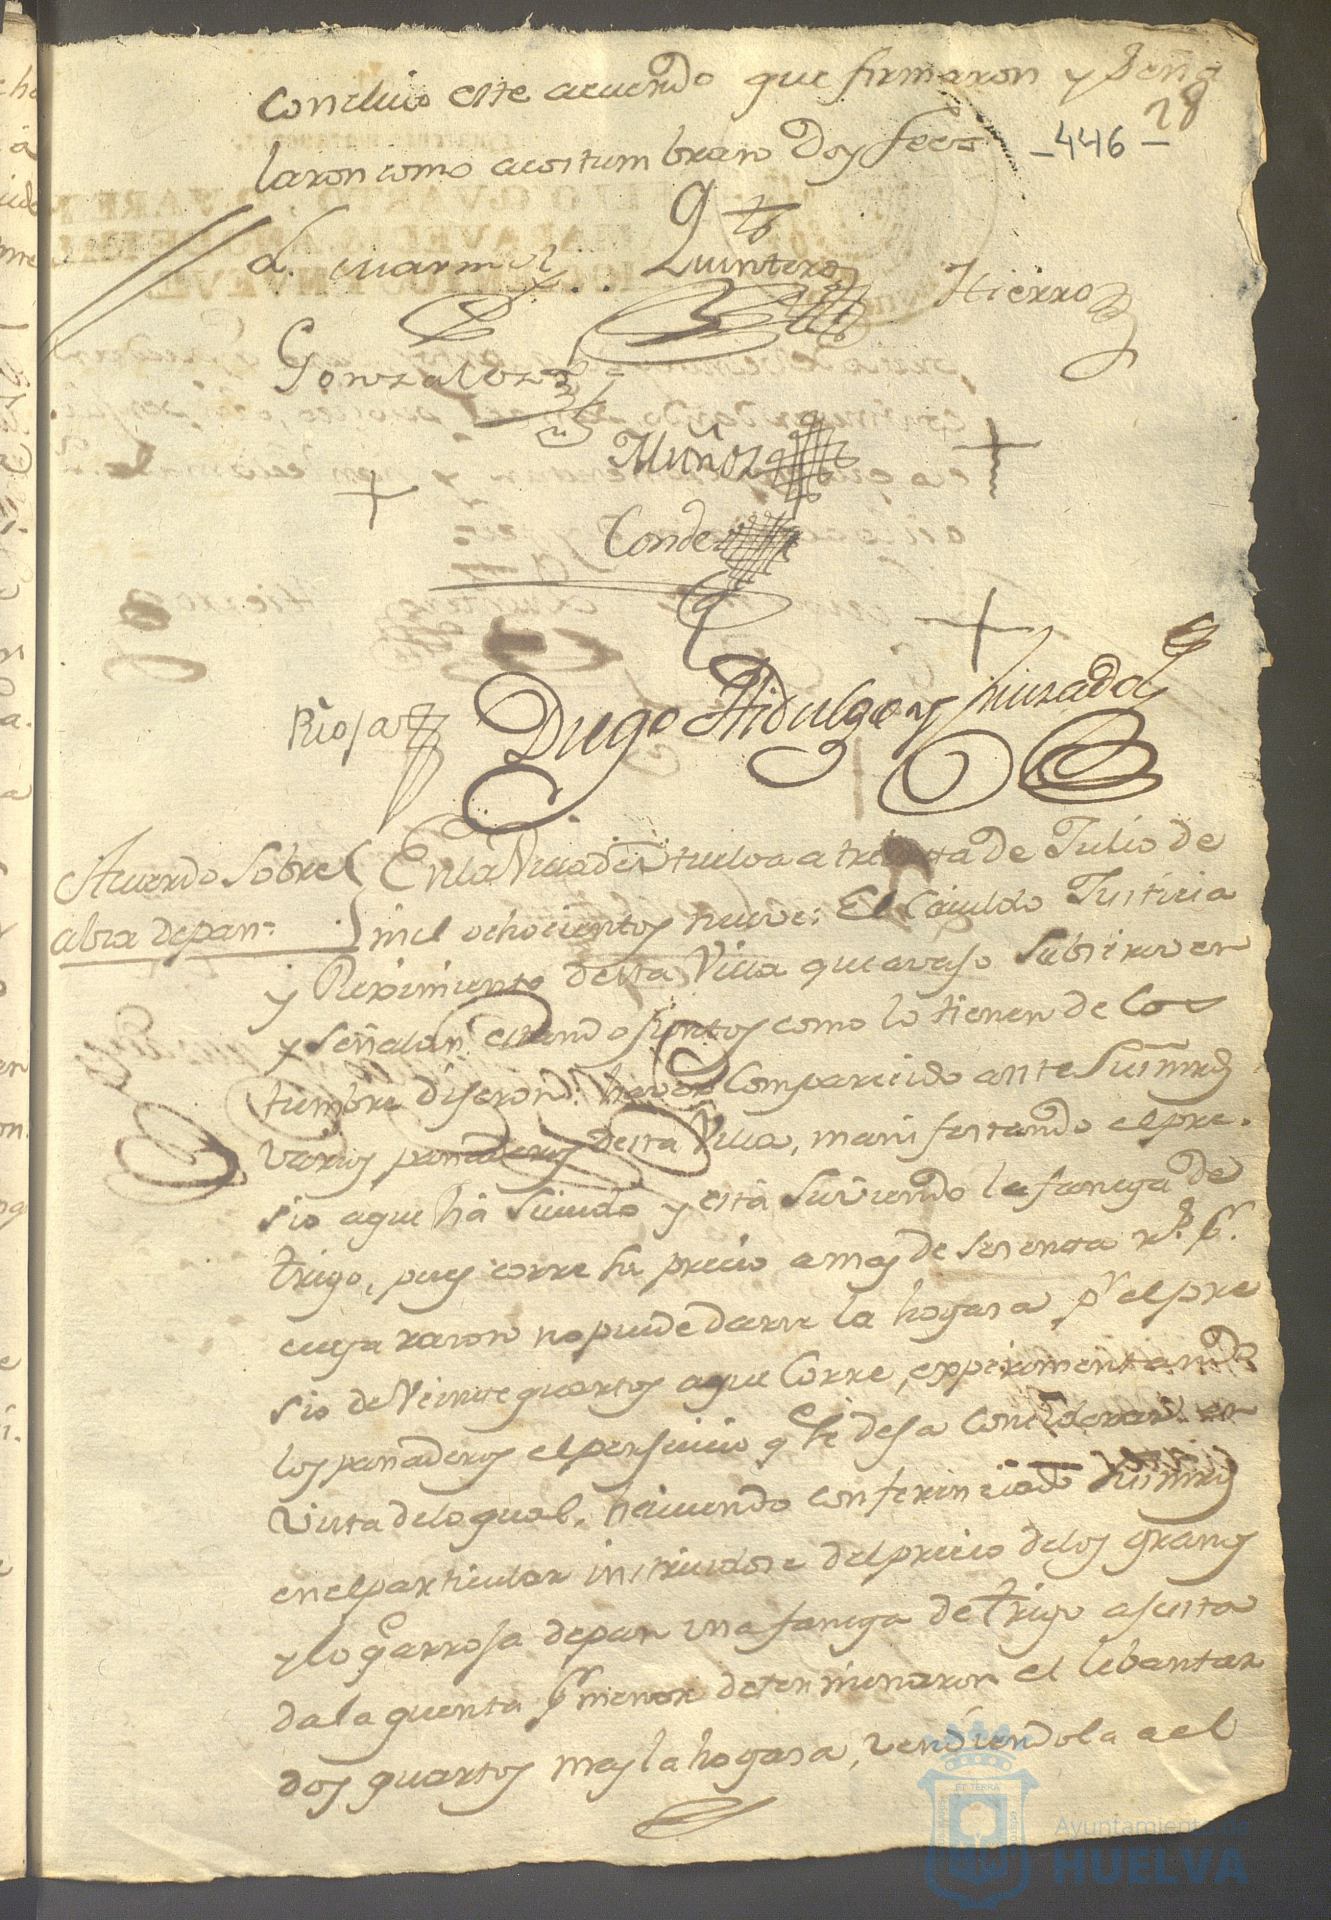 concluio este acuerdo que firmaron y seña
laron como acostumbran Doy fee=
28
-446-
Quintero
Hierro
Gonzalez
Muñoz
Conde
Rioja
Diego Hidalgo y Jurado
Acuerdo Sobre
alza de pan=
En la Villa de Huelva a treinta de Julio de
mil ochocientos nueve: El Cavildo Justicia
y Reximiento desta Villa que avajo Subscriven
y Señalan estando juntos como lo tienen de Cos
tumbre dijeron: haver Comparecido ante Sus mrds
varios panaderos desta Villa, manifestando el pre-
sio a que há Suvido y está Suviendo la fanega de
trigo, pues corre su precio a mas de sesenta rs. pr.
cuya razon no puede darse la hogasa pr el pre
sio de Veinte quartos a que Corre, experimentando
los panaderos el perjuicio q se deja considerar. en
vista de lo qual, haviendo conferenciado Sus mrds
en el particular instruidose del precio de los granos
y lo q arroja de pan una fanega de trigo ajusta
da la quenta pr menor determinaron el lebantar
dos quartos mas la hogasa, vendiendola a el
ET TERRA
Ayuntamiento de
HUELVA